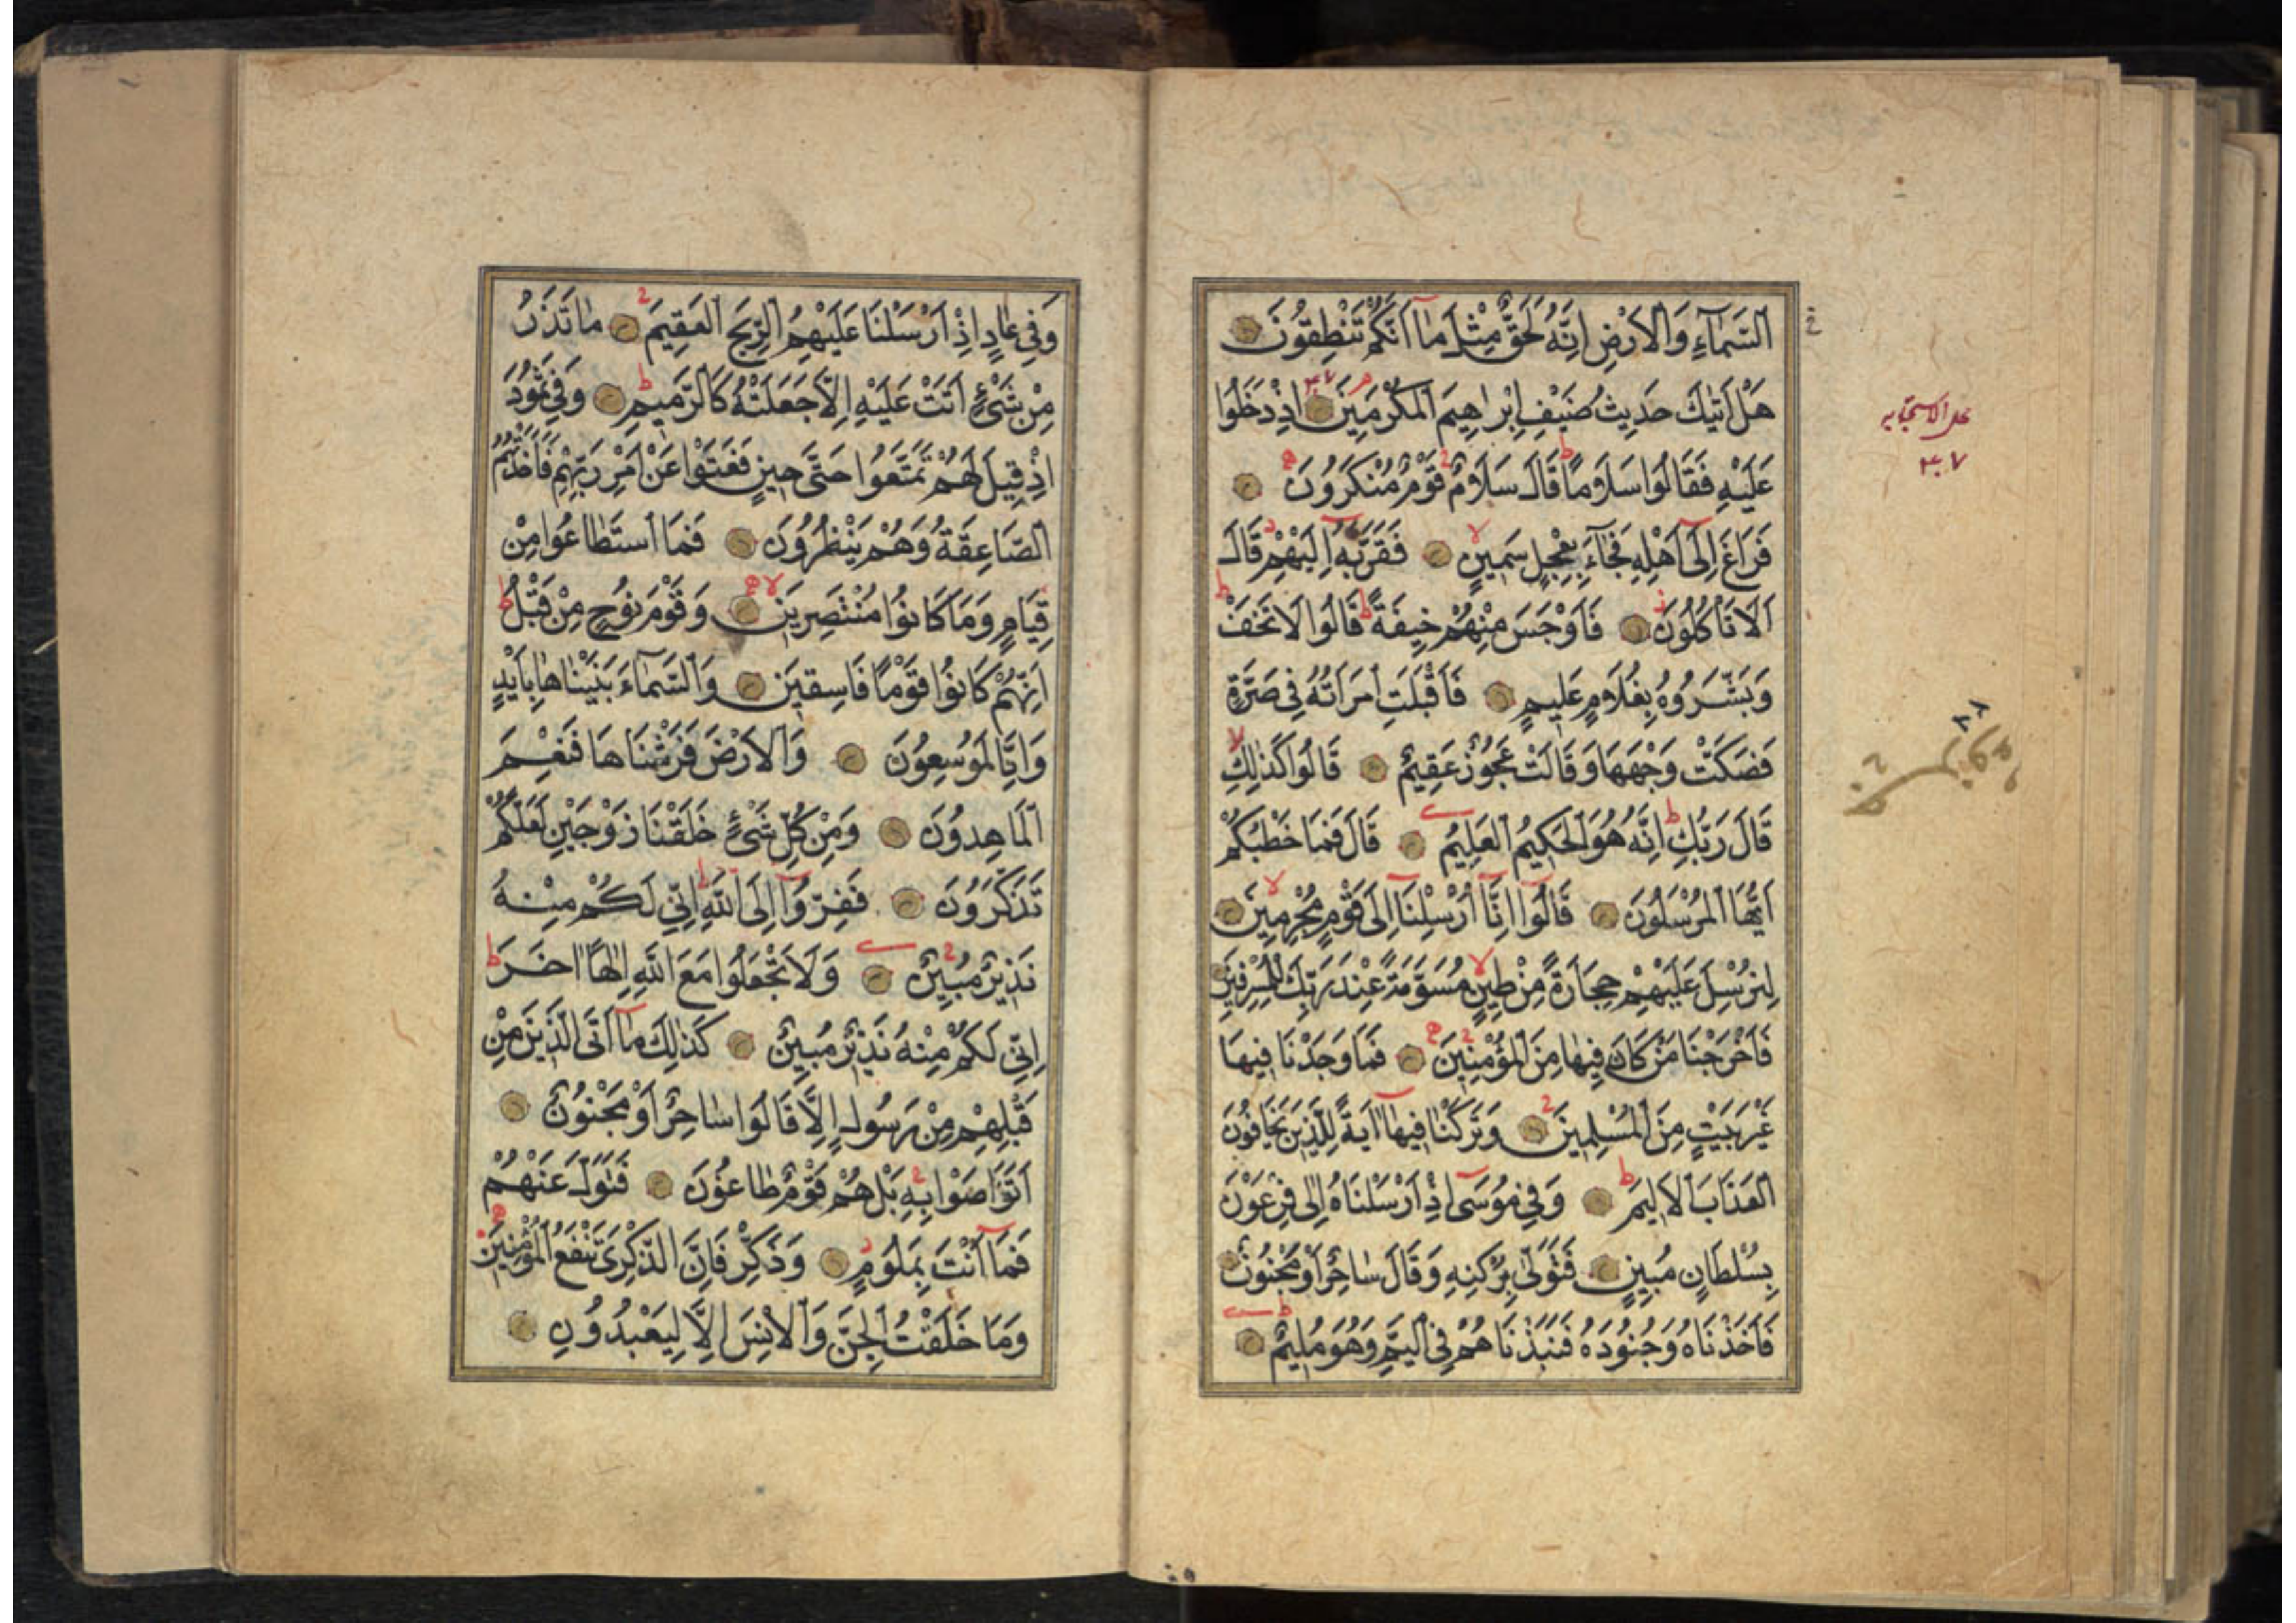 اَلسَّمَاءِ وَالْاَرْضِ اِنَّهُ لَحَقٌّ مِثْلَ مَا اَنَّكُمْ تَنْطِقُونَ
هَلْ اَتٰيكَ حَدِيثُ ضَيْفِ اِبْرَاهِيمَ الْمُكْرَمِينَ اِذْ دَخَلُوا
عَلَيْهِ فَقَالُوا سَلَامًا قَالَ سَلَامٌ قَوْمٌ مُنْكَرُونَ
فَرَاغَ اِلٰى اَهْلِهِ فَجَاءَ بِعِجْلٍ سَمِينٍ فَقَرَّبَهُ اِلَيْهِمْ قَالَ
اَلَا تَأْكُلُونَ فَاَوْجَسَ مِنْهُمْ خِيفَةً قَالُوا لَا تَخَفْ
وَبَشَّرُوهُ بِغُلَامٍ عَلِيمٍ فَاَقْبَلَتِ امْرَاَتُهُ فِي صَرَّةٍ
فَصَكَّتْ وَجْهَهَا وَقَالَتْ عَجُوزٌ عَقِيمٌ قَالُوا كَذٰلِكِ
قَالَ رَبُّكِ اِنَّهُ هُوَ الْحَكِيمُ الْعَلِيمُ قَالَ فَمَا خَطْبُكُمْ
اَيُّهَا الْمُرْسَلُونَ قَالُوا اِنَّا اُرْسِلْنَا اِلٰى قَوْمٍ مُجْرِمِينَ
لِنُرْسِلَ عَلَيْهِمْ حِجَارَةً مِنْ طِينٍ مُسَوَّمَةً عِنْدَ رَبِّكَ لِلْمُسْرِفِينَ
فَاَخْرَجْنَا مَنْ كَانَ فِيهَا مِنَ الْمُؤْمِنِينَ فَمَا وَجَدْنَا فِيهَا
غَيْرَ بَيْتٍ مِنَ الْمُسْلِمِينَ وَتَرَكْنَا فِيهَا اٰيَةً لِلَّذِينَ يَخَافُونَ
الْعَذَابَ الْاَلِيمَ وَفِي مُوسٰى اِذْ اَرْسَلْنَاهُ اِلٰى فِرْعَوْنَ
بِسُلْطَانٍ مُبِينٍ فَتَوَلّٰى بِرُكْنِهِ وَقَالَ سَاحِرٌ اَوْ مَجْنُونٌ
فَاَخَذْنَاهُ وَجُنُودَهُ فَنَبَذْنَاهُمْ فِي الْيَمِّ وَهُوَ مُلِيمٌ
٣٠٧
وَفِي عَادٍ اِذْ اَرْسَلْنَا عَلَيْهِمُ الرِّيحَ الْعَقِيمَ مَا تَذَرُ
مِنْ شَيْءٍ اَتَتْ عَلَيْهِ اِلَّا جَعَلَتْهُ كَالرَّمِيمِ وَفِي ثَمُودَ
اِذْ قِيلَ لَهُمْ تَمَتَّعُوا حَتّٰى حِينٍ فَعَتَوْا عَنْ اَمْرِ رَبِّهِمْ فَاَخَذَتْهُمُ
الصَّاعِقَةُ وَهُمْ يَنْظُرُونَ فَمَا اسْتَطَاعُوا مِنْ
قِيَامٍ وَمَا كَانُوا مُنْتَصِرِينَ وَقَوْمَ نُوحٍ مِنْ قَبْلُ
اِنَّهُمْ كَانُوا قَوْمًا فَاسِقِينَ وَالسَّمَاءَ بَنَيْنَاهَا بِاَيْيدٍ
وَاِنَّا لَمُوسِعُونَ وَالْاَرْضَ فَرَشْنَاهَا فَنِعْمَ
الْمَاهِدُونَ وَمِنْ كُلِّ شَيْءٍ خَلَقْنَا زَوْجَيْنِ لَعَلَّكُمْ
تَذَكَّرُونَ فَفِرُّوا اِلَى اللّٰهِ اِنِّي لَكُمْ مِنْهُ
نَذِيرٌ مُبِينٌ وَلَا تَجْعَلُوا مَعَ اللّٰهِ اِلٰهًا اٰخَرَ
اِنِّي لَكُمْ مِنْهُ نَذِيرٌ مُبِينٌ كَذٰلِكَ مَا اَتَى الَّذِينَ مِنْ
قَبْلِهِمْ مِنْ رَسُولٍ اِلَّا قَالُوا سَاحِرٌ اَوْ مَجْنُونٌ
اَتَوَاصَوْا بِهِ بَلْ هُمْ قَوْمٌ طَاغُونَ فَتَوَلَّ عَنْهُمْ
فَمَا اَنْتَ بِمَلُومٍ وَذَكِّرْ فَاِنَّ الذِّكْرٰى تَنْفَعُ الْمُؤْمِنِينَ
وَمَا خَلَقْتُ الْجِنَّ وَالْاِنْسَ اِلَّا لِيَعْبُدُونِ